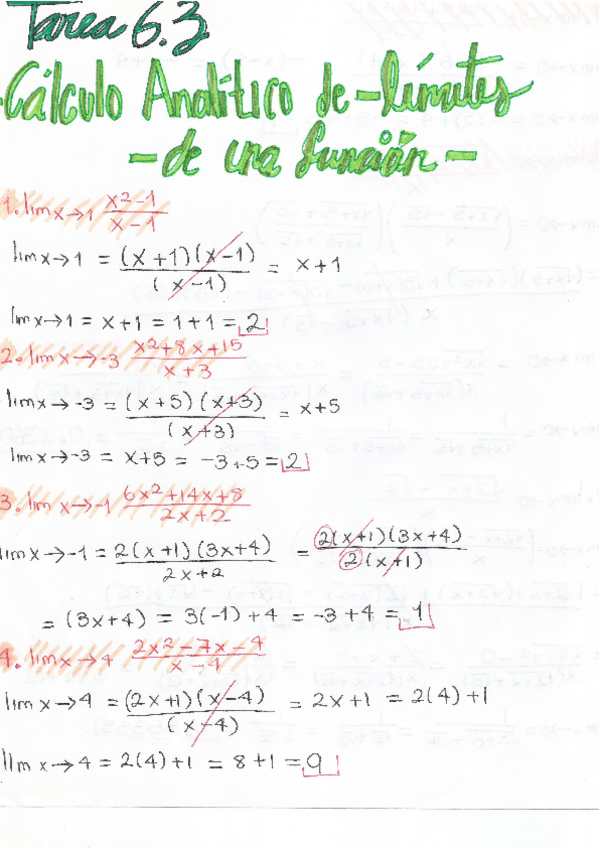 Tarea 6.3
-Cálculo Analítico de-límites
-de una función-
1. lim x→1 x²-1 / x-1
lim x→1 = (x+1)(x-1) / (x-1) = x+1
lim x→1 = x+1 = 1+1 = 2
2. lim x→-3 x²+8x+15 / x+3
lim x→-3 = (x+5)(x+3) / (x+3) = x+5
lim x→-3 = x+5 = -3+5 = 2
3. lim x→-1 6x²+14x+8 / 2x+2
lim x→-1 = 2(x+1)(3x+4) / 2x+2 = 2(x+1)(3x+4) / 2(x+1)
= (3x+4) = 3(-1)+4 = -3+4 = 1
4. lim x→4 2x²-7x-4 / x-4
lim x→4 = (2x+1)(x-4) / (x-4) = 2x+1 = 2(4)+1
lim x→4 = 2(4)+1 = 8+1 = 9